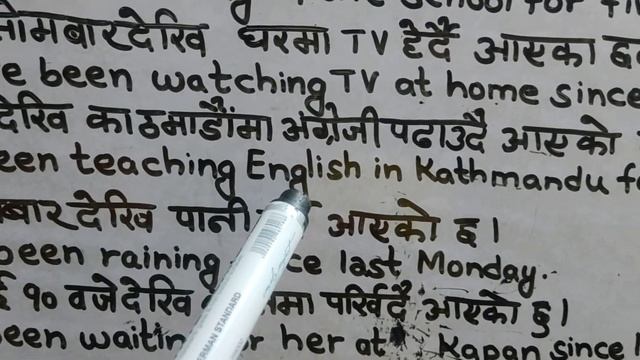 school for
सोमबारदेखि घरमा TV हेर्दै आएका छ
e been watching TV at home since
देखि काठमाडौंमा अंग्रेजी पढाउदै आएको
een teaching English in Kathmandu f
बारदेखि पानी आएको छ।
been raining ce last Monday.
१० वजेदेखि मा पर्खिदै आएको छु।
een waitin r her at Kapan since
GERMAN STANDARD